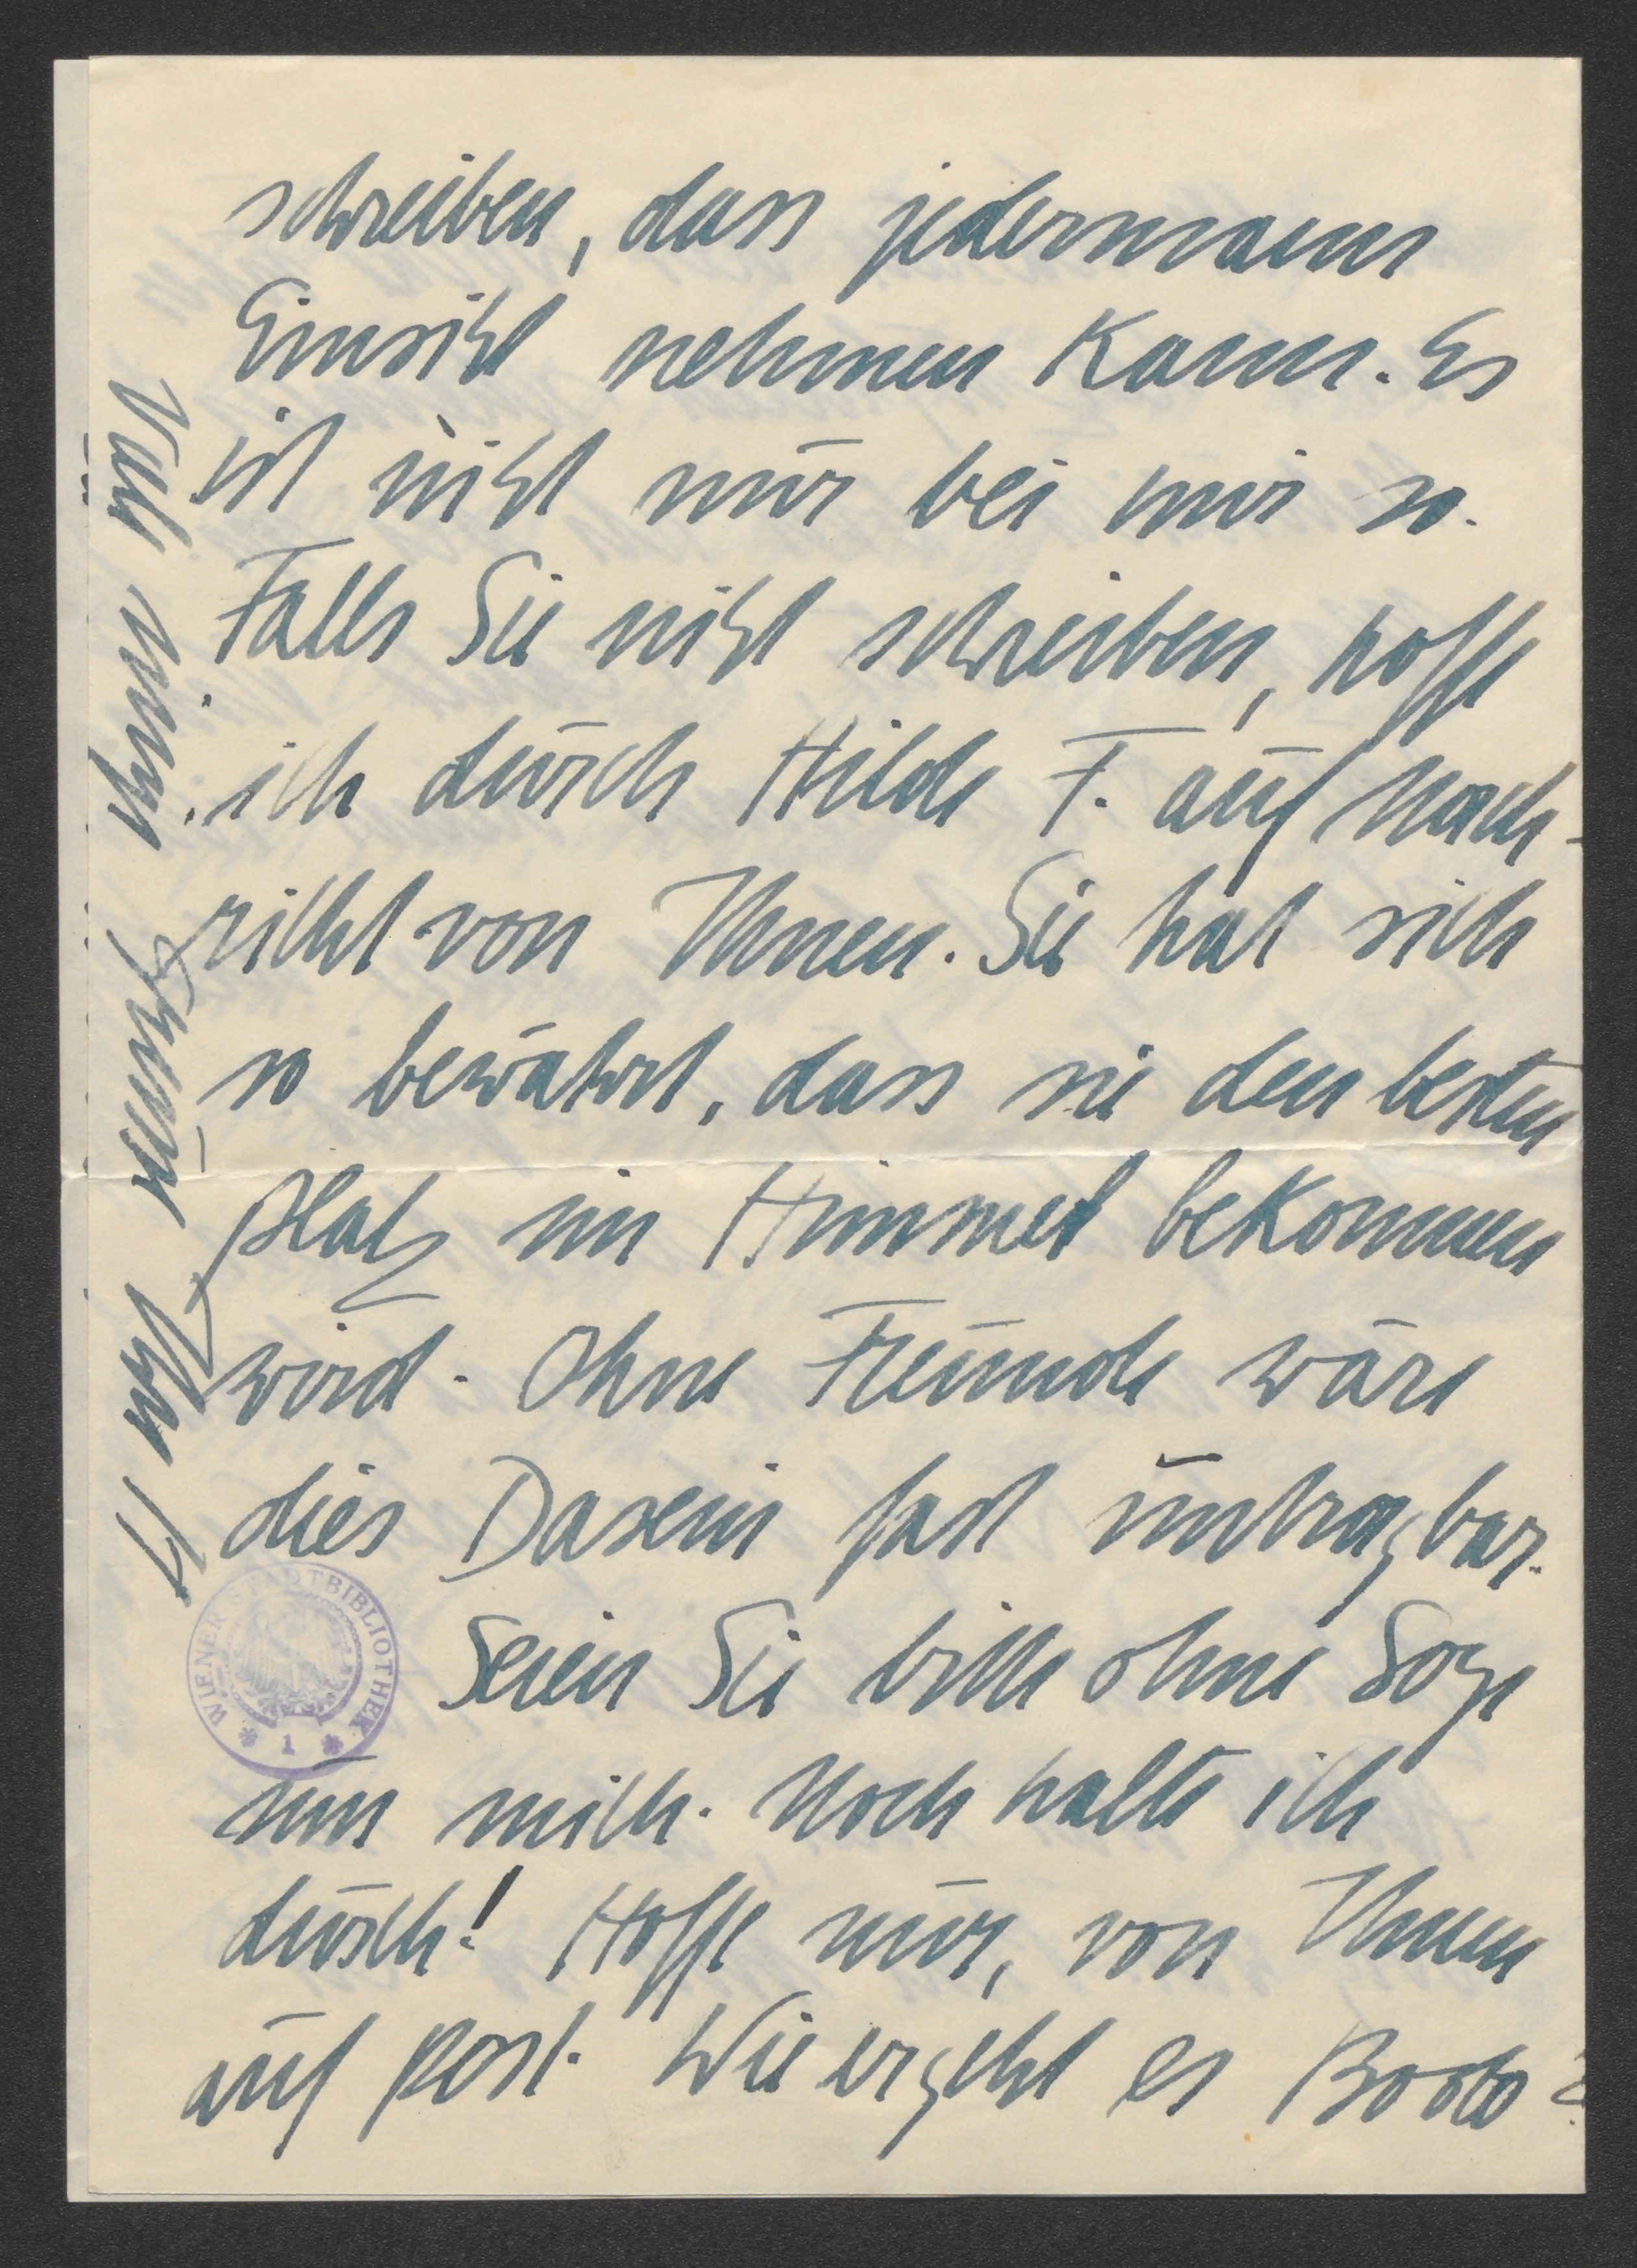 schreiben, dass jedermann
Einsicht nehmen kann. Es
ist nicht nur bei mir so.
Falls Sie nicht schreiben, hoffe
ich durch Hilde F. auf Nach-
richt von Ihnen. Sie hat sich
so bewährt, dass sie den besten
Platz im Himmel bekommen
wird. Ohne Freunde wäre
dies Dasein fast untragbar.
Seien Sie bitte ohne Sorge
um mich. Noch halte ich
durch! Hoffe nur, von Ihnen
auf Post. Wie ergeht es Bobo?
Viele innige Grüsse
WIENER STADTBIBLIOTHEK
* 1 *